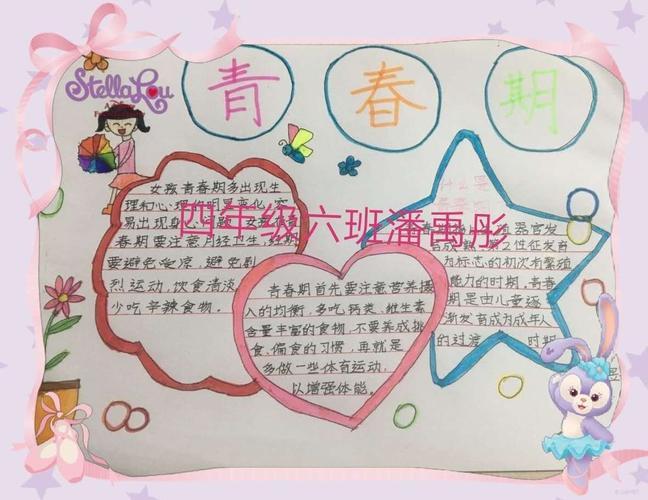 StellaLou
青春期
四年级六班潘禹彤
女孩青春期多出现生
理和心理的明显变化,容
易出现身心问题
春期要注意月经卫生,经期
要避免受凉,避免剧
烈运动,饮食清淡
少吃辛辣食物。
青春期首先要注意营养摄
入的均衡,多吃钙类、维生素
含量丰富的食物,不要养成挑
食、偏食的习惯,再就是
多做一些体育运动,
以增强体能。
什么是
器官发
育成熟、第2性征发育
为标志的初次有繁殖
能力的时期。青春
期是由儿童逐
渐发育成为成年人
的过渡 时期